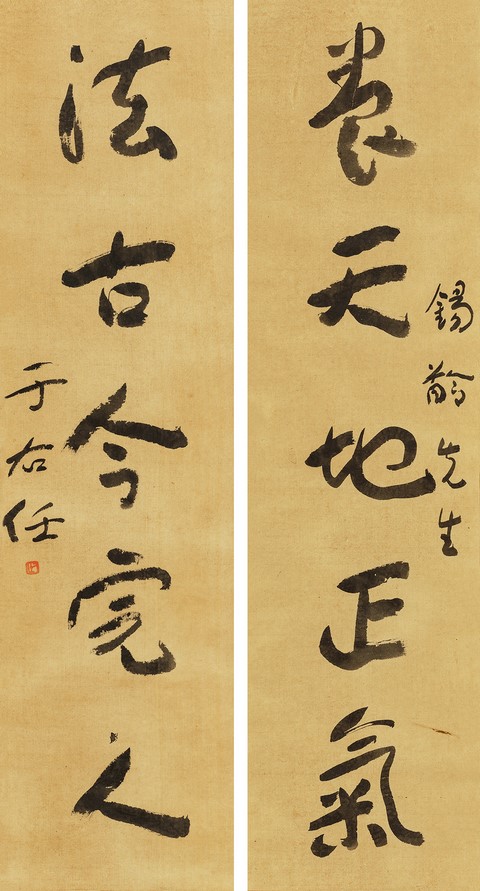 錫齡先生
養天地正氣
法古今完人
于右任